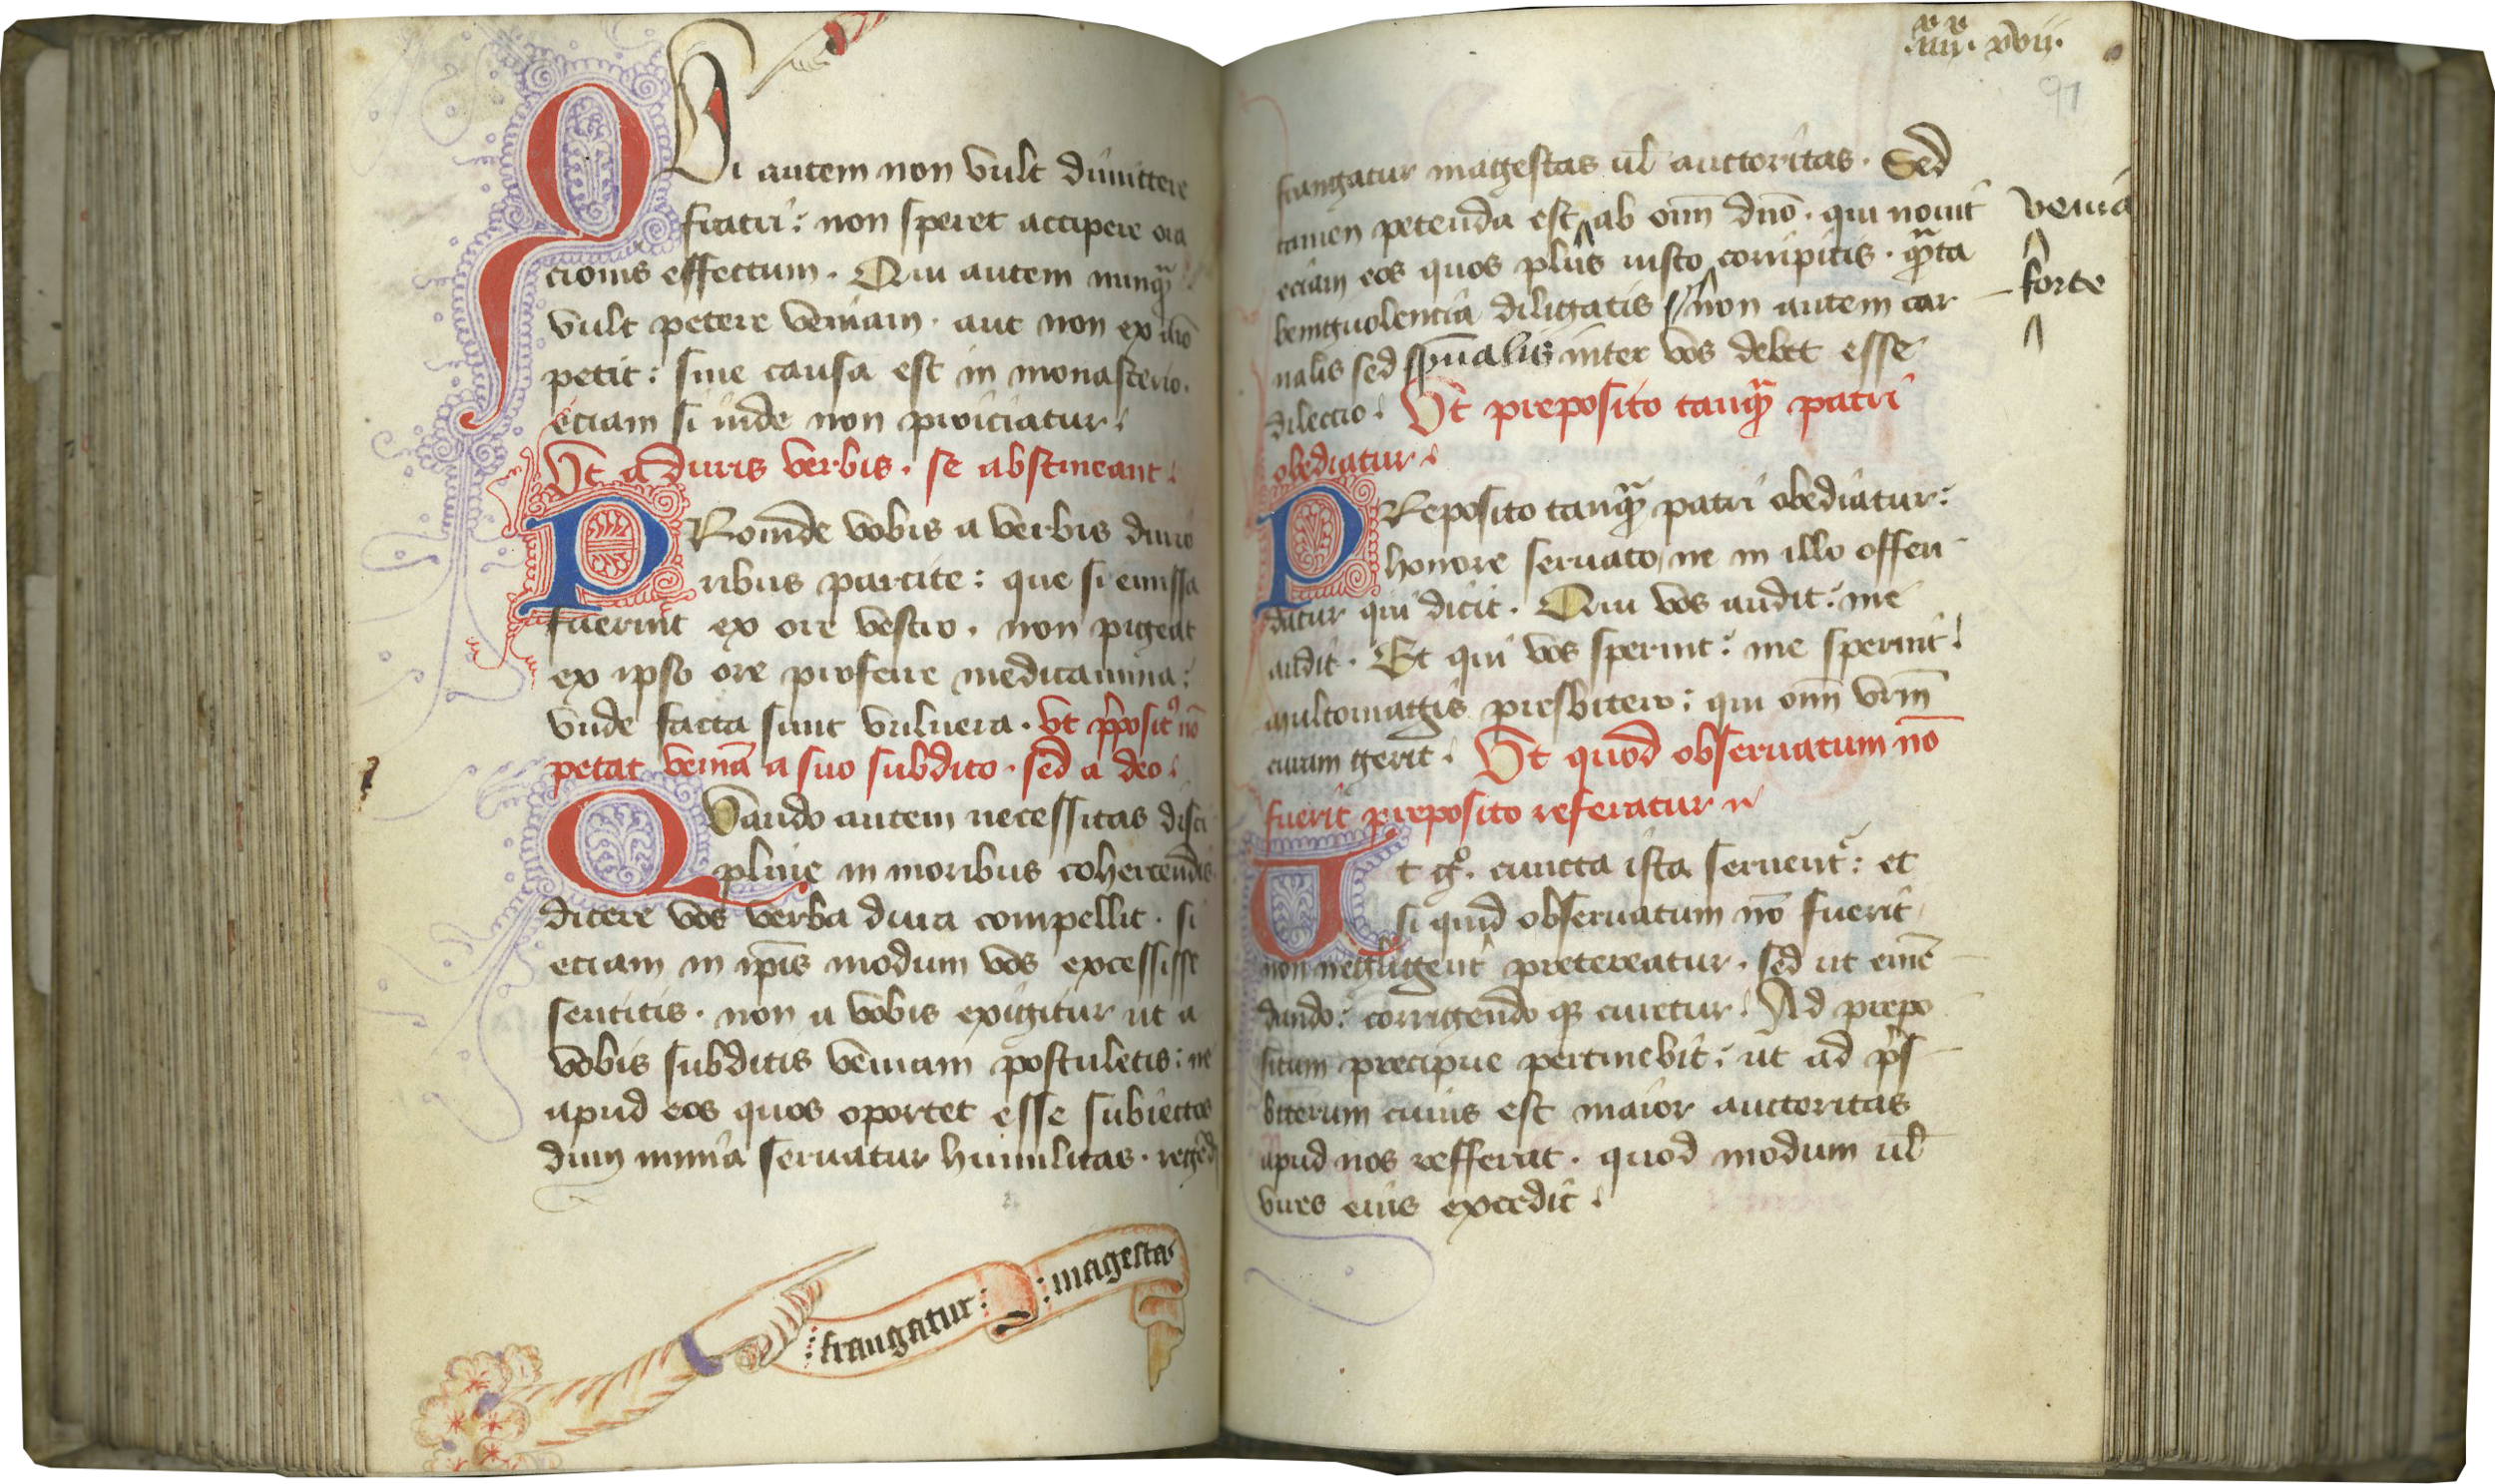 QUi autem non vult dimittere
fratri: non speret accipere ora
cionis effectum. Qui autem nunq̃
vult petere veniam. aut non ex aĩo
petit: sine causa est in monasterio.
eciam si inde non proiciatur.
Vt a duris verbis. se abstineant.
PRoinde vobis a verbis durio
ribus parcite: que si emissa
fuerint ex ore vestro. non pigeat
ex ipso ore proferre medicamina:
vnde facta sunt vulnera. vt p̃posit9 nõ
petat veniã a suo subdito. sed a deo.
QVando autem necessitas disci
pline in moribus cohercendis
dicere vos verba dura compellit. si
eciam in ip̃is modum vos excessisse
sentitis. non a vobis exigitur ut a
vobis subditis veniam postuletis: ne
apud eos quos oportet esse subiectos
dum nimia seruatur humilitas. regẽd
frangatur: : magestas
.iiii. xvii.
91
frangatur magestas ul̃ auctoritas. Sed
tamen petenda est ab om̃ dño. qui nouit
venia
eciam eos quos plus iusto corripitis. q̃ta
forte
beniguolencia diligatis non autem car
nalis sed sp̃ualis inter vos debet esse
dilectio. Vt preposito tanq̃ patri
obediatur.
PReposito tanq̃ patri obediatur:
honore seruato ne in illo offen
datur qui dicit. Qui vos audit: me
audit. Et qui vos spernit: me spernit.
multomagis presbitero: qui om̃ vrm̃
curam gerit. Vt quod obseruatum nõ
fuerit preposito referatur
Ut g°. cuncta ista seruent̃: et
si quid obseruatum nõ fuerit
non negligent̃ pretereatur. sed ut emẽ
dando: corrigendo q3 curetur. Ad prepo
situm precipue pertinebit: ut ad p̃s
biterum cuius est maior auctoritas
apud nos refferat. quod modum ul̃
vires eius excedit.